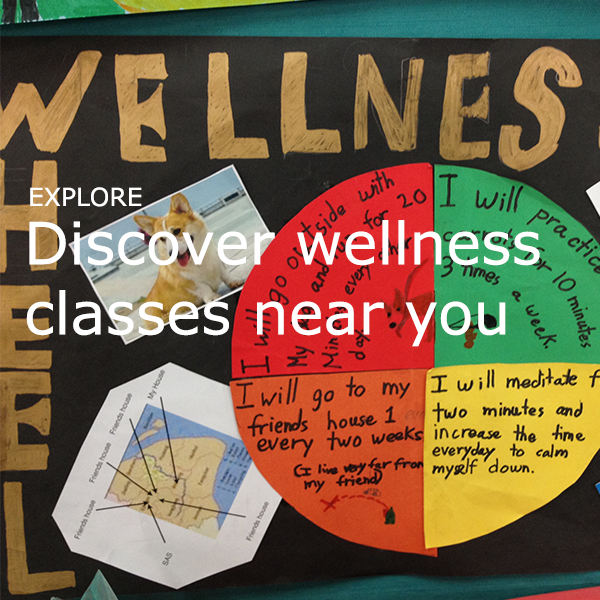 WELLNESS
H
E
E
L
EXPLORE
Discover wellness
classes near you
I will go outside with
My and for 20
Minutes every other
day
I will practice
for 10 minutes
3 times a week.
I will go to my
friends house 1
every two weeks
(I live very far from
my friend)
I will meditate f
two minutes and
increase the time
everyday to calm
myself down.
My House
Friends house
Friends house
Friends house
Friends house
SAS